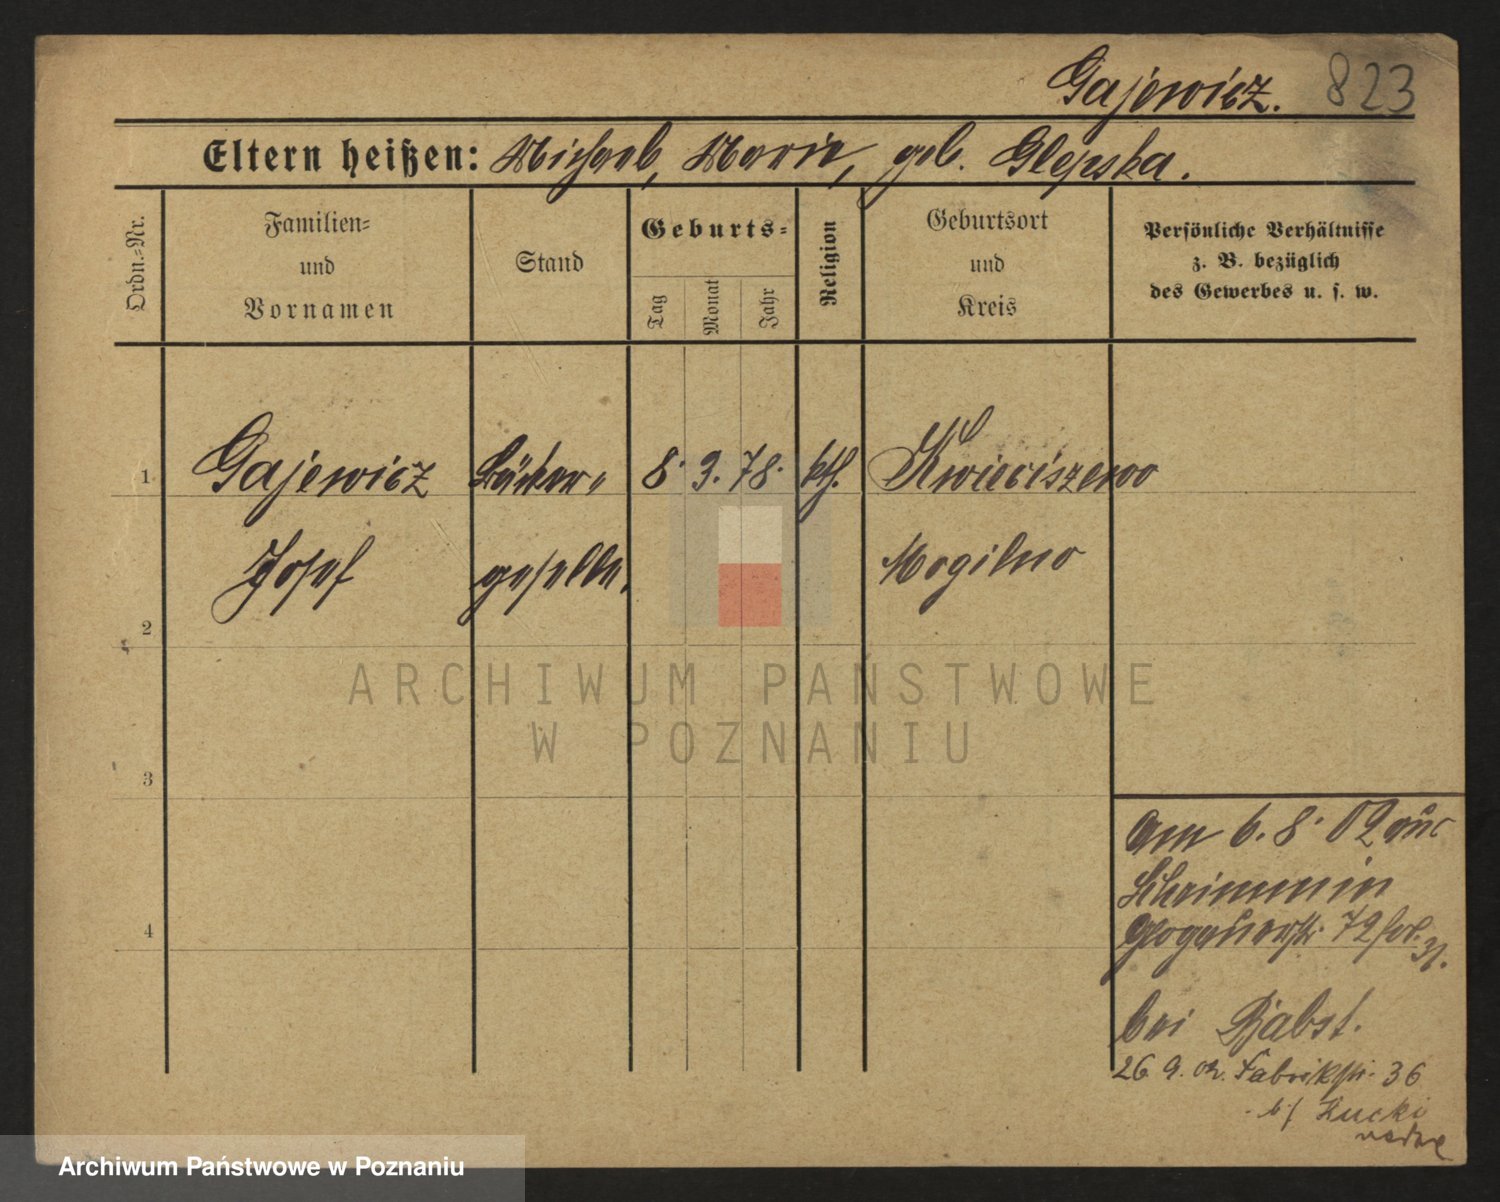 Gajewicz. 823
Eltern heißen: Michael, Marie, geb. Glejska.
Ordn.-Nr.
Familien-
und
Vornamen
Stand
Geburts-
Tag
Monat
Jahr
Religion
Geburtsort
und
Kreis
Persönliche Verhältnisse
z. B. bezüglich
des Gewerbes u. s. w.
1 Gajewicz Bäcker- 8. 3. 78. kth. Kwieciszewo
Josef geselle. Mogilno
2
3
4
am 6. 8. 02 aus
Schrimm in
Glogauerstr. 72
bei Pabst.
26. 9. 02. Fabrikstr. 36
b/ Kucki
ARCHIWUM PAŃSTWOWE
W POZNANIU
Archiwum Państwowe w Poznaniu